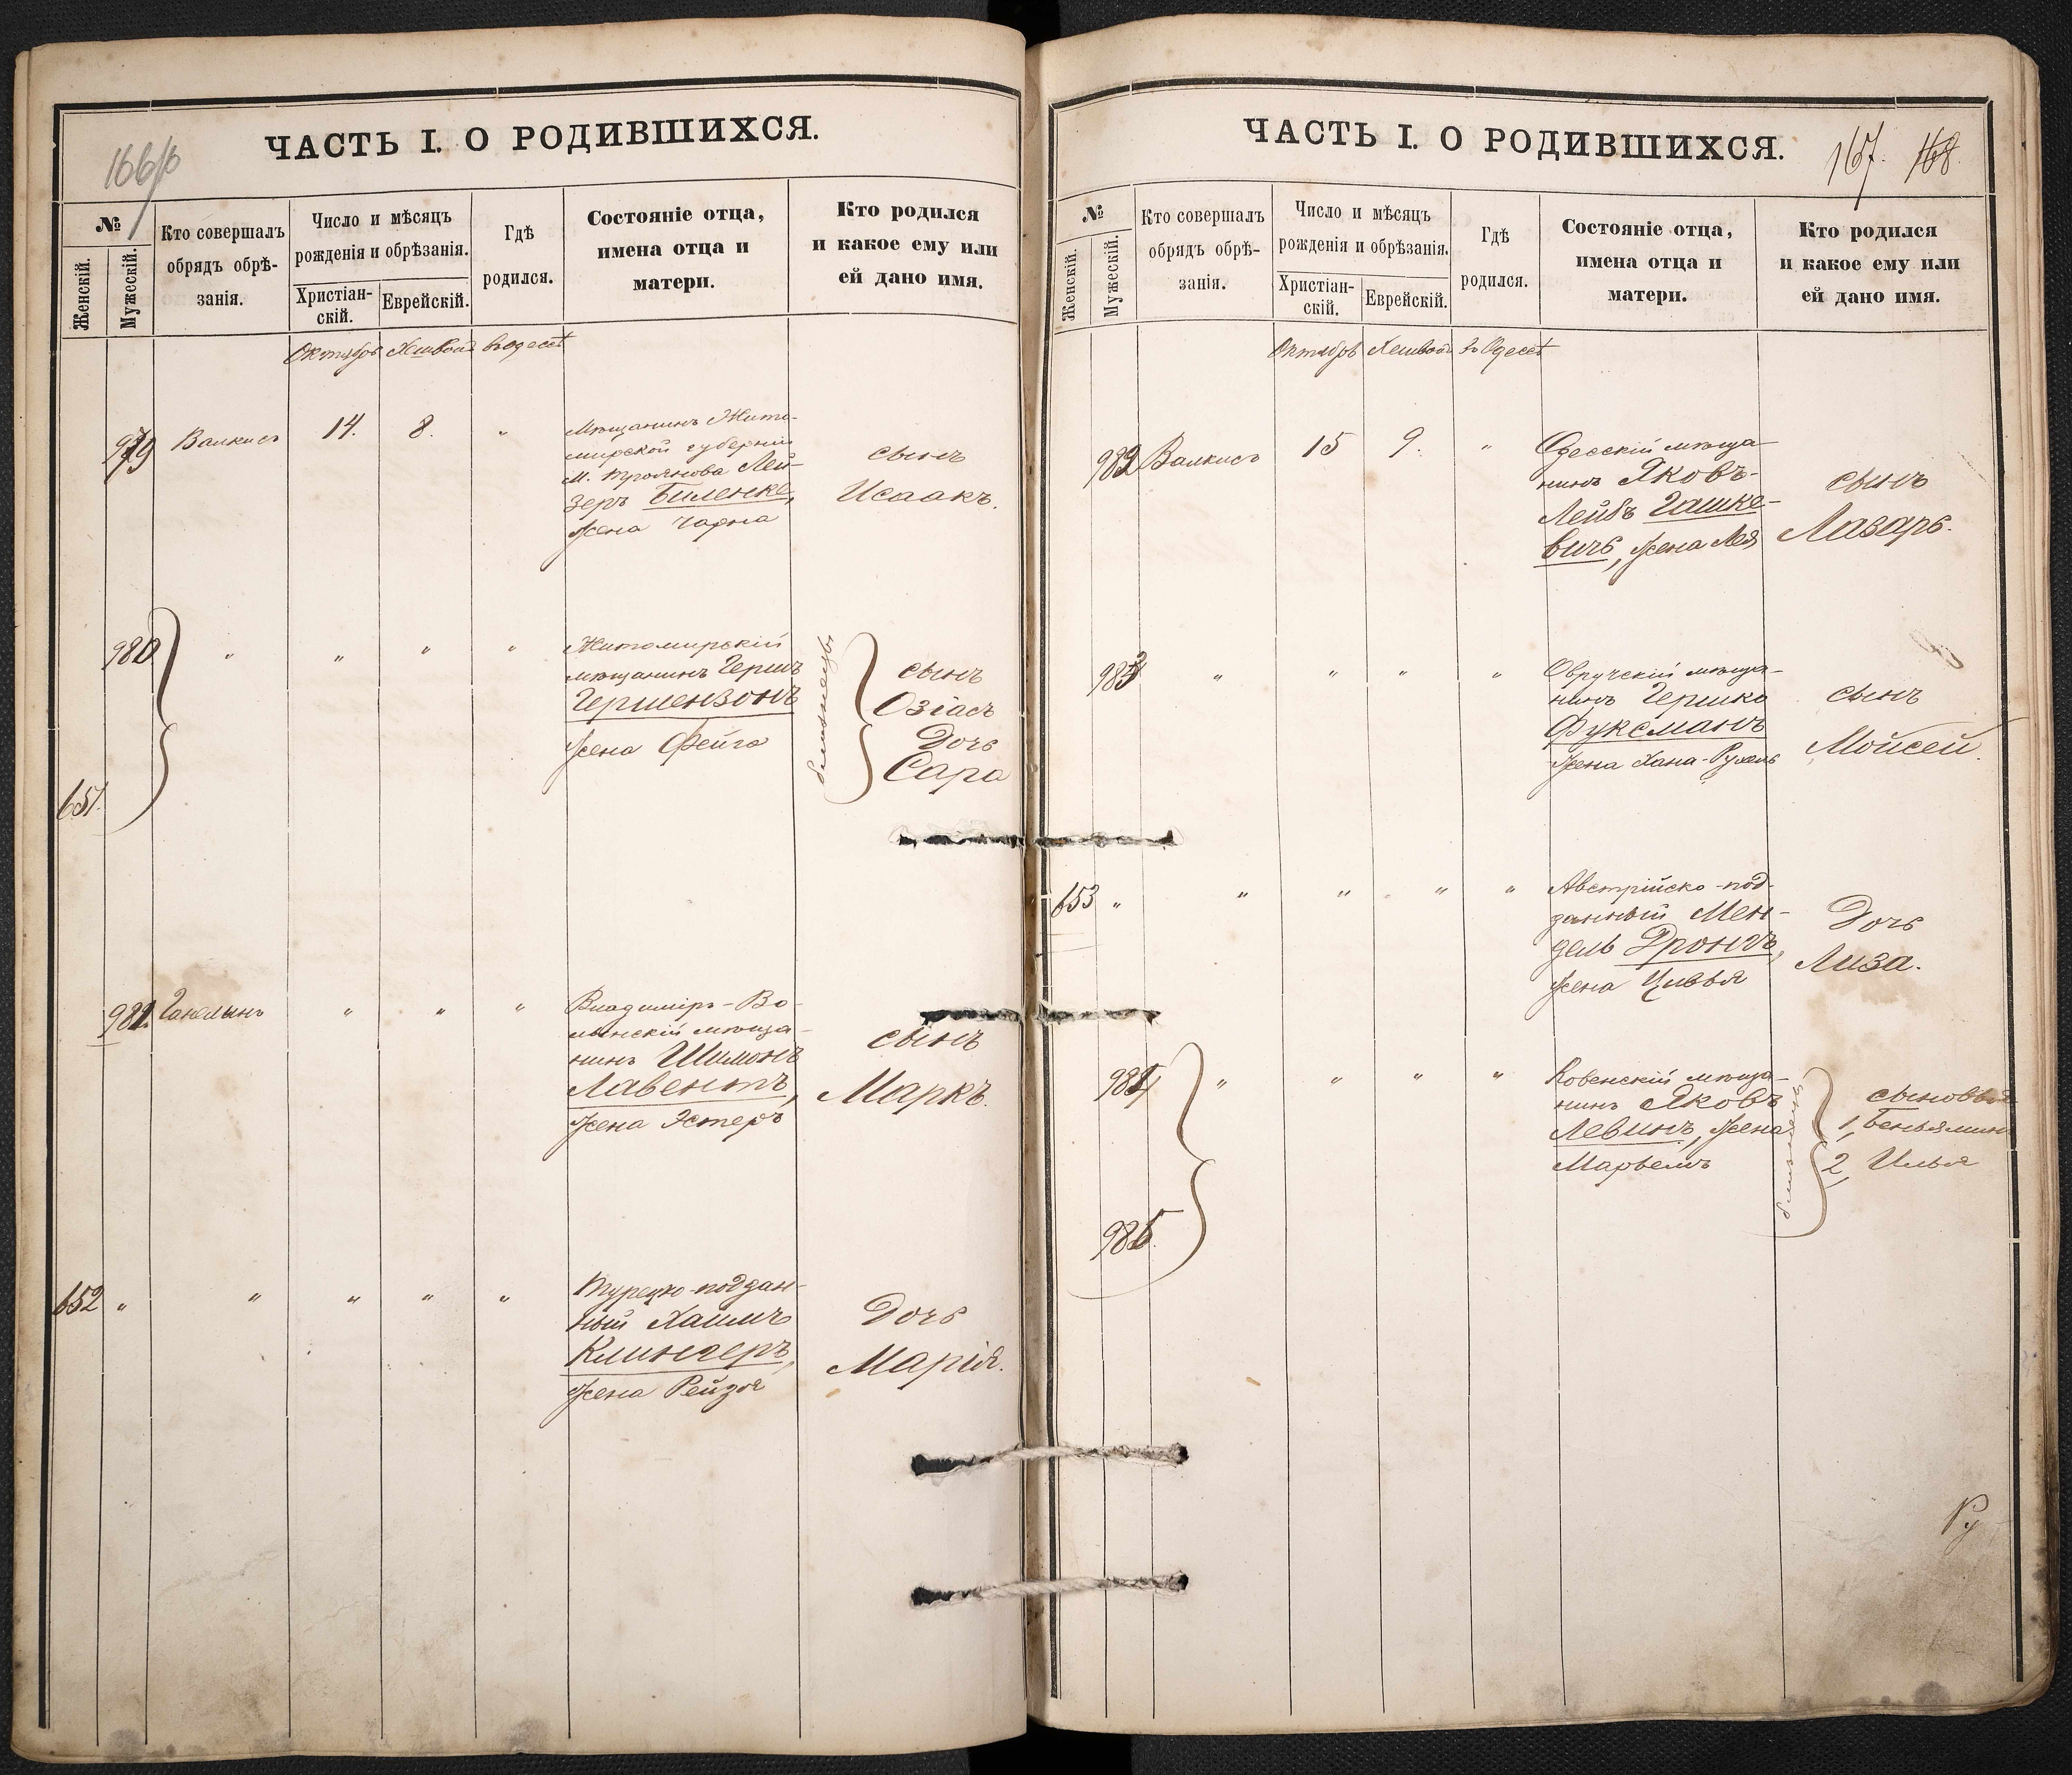 ЧАСТЬ I. О РОДИВШИХСЯ.
№
Женскій.
Мужескій.
Кто совершалъ
обрядъ обрѣ-
занія.
Число и мѣсяцъ
рожденія и обрѣзанія.
Христіан-
скій.
Еврейскій.
Гдѣ
родился.
Состояніе отца,
имена отца и
матери.
Кто родился
и какое ему или
ей дано имя.
Октябрь Хешвонъ въ Одессѣ
979 Валкисъ 14. 8. "
Мѣщанинъ Жито-
мирской губерніи
М. Троянова Лей-
зеръ Биленке,
жена Чарна
сынъ
Исаакъ.
980 " " " "
Житомирскій
мѣщанинъ Герш
Гершензонъ
жена Фейга
близнецы
сынъ
Озіасъ
Дочь
Сара
651.
981. " " "
Владиміръ-Во-
лынскій мѣща-
нинъ Шимонъ
Лавентъ,
жена Эстеръ
сынъ
Маркъ.
652 " " " " "
Турецко-поддан-
ный Хаимъ
Клингеръ,
жена Рейзя
Дочь
Марія.
ЧАСТЬ I. О РОДИВШИХСЯ.
167. 168.
№
Женскій.
Мужескій.
Кто совершалъ
обрядъ обрѣ-
занія.
Число и мѣсяцъ
рожденія и обрѣзанія.
Христіан-
скій.
Еврейскій.
Гдѣ
родился.
Состояніе отца,
имена отца и
матери.
Кто родился
и какое ему или
ей дано имя.
Октябрь Хешвонъ въ Одессѣ
982 Валкисъ 15 9. "
Одесскій мѣща-
нинъ Яковъ-
Лейбъ Гашке-
вичъ, жена Лея
сынъ
Лазарь.
983 " " " "
Овручскій мѣща-
нинъ Гершко
Фуксманъ
жена Хана-Рухль
сынъ
Мойсей.
653 " " " " "
Австрійско-под-
данный Мен-
дель Дрондъ,
жена Цивья
Дочь
Лиза.
984 " " " "
Ковенскій мѣща-
нинъ Яковъ
Левинъ, жена
Марьемъ
близнецы
сыновья
1, Беньяминъ
2, Илья
985.